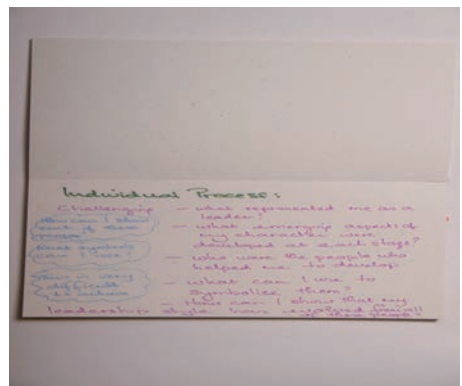 Individual Process:
Challenging
How can I show
each of these
What symbols
can I use?
This is very
difficult
— what represented me as a
leader?
— what emerging aspects of
my character were
developed at each stage?
— who were the people who
helped me to develop
— what can I use to
symbolise them?
— How can I show that my
leadership style has emerged from all
of these people?